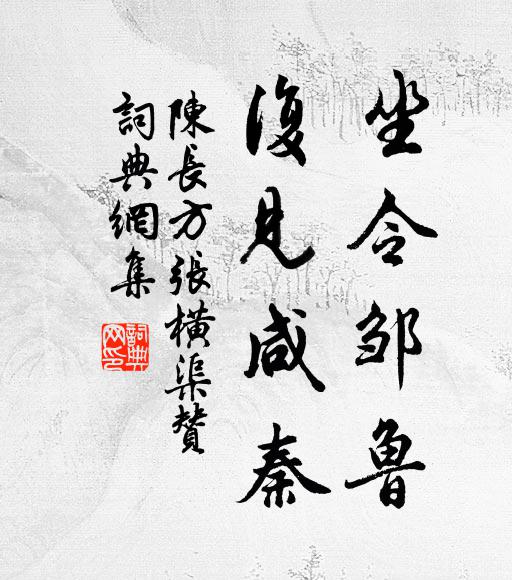 坐令邹鲁
復見咸秦
陳長方張橫渠贊
詞典網集
詞典网印